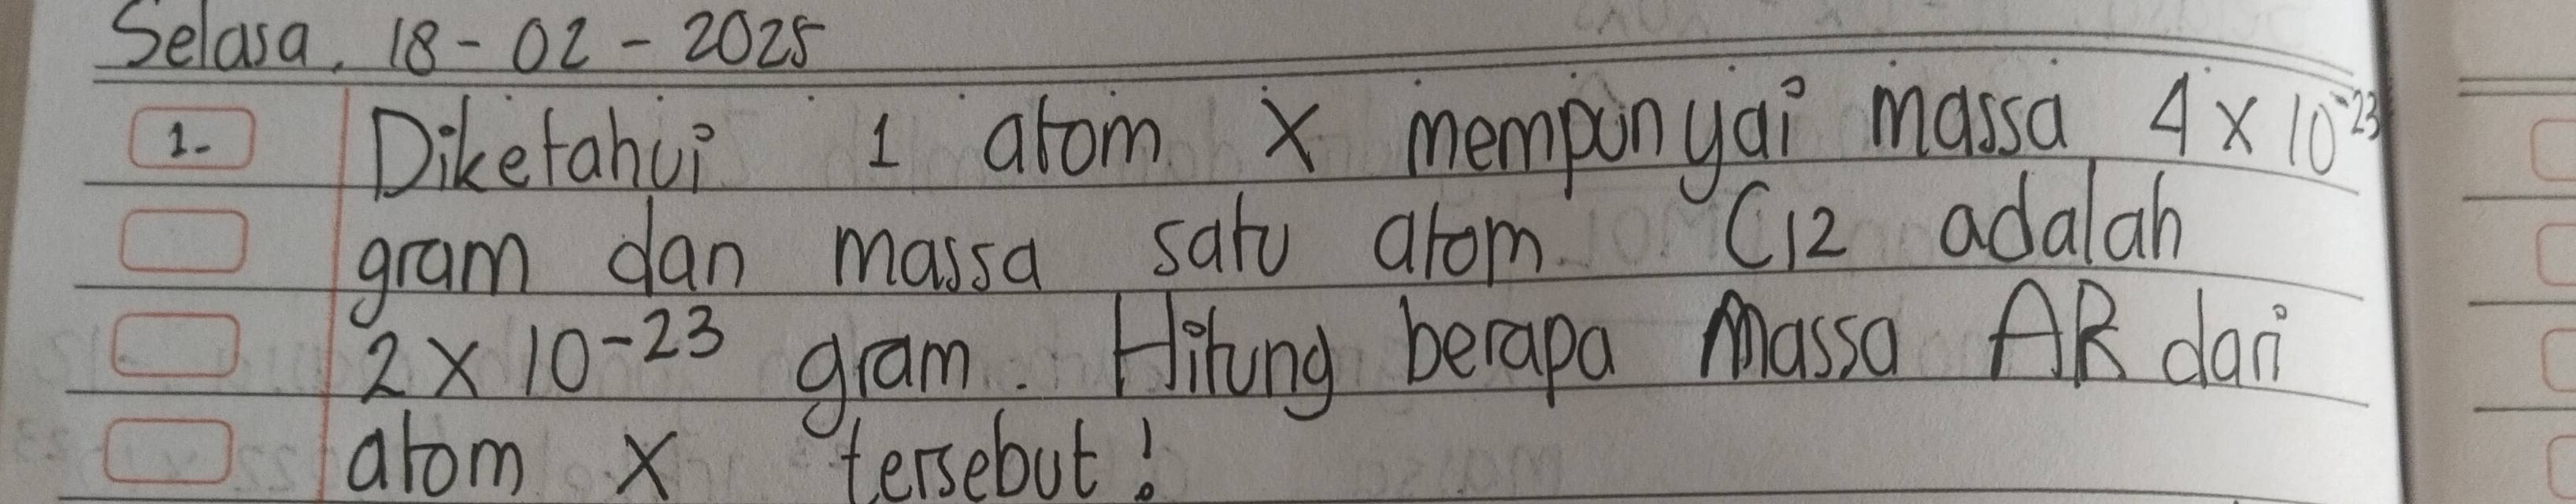 Selasa, 18-02-2025
1. Diketahui 1 atom X mempunyai massa 4 x 10⁻²³
gram dan massa satu atom C12 adalah
2 x 10⁻²³ gram. Hitung berapa Massa AR dari
atom X tersebut!